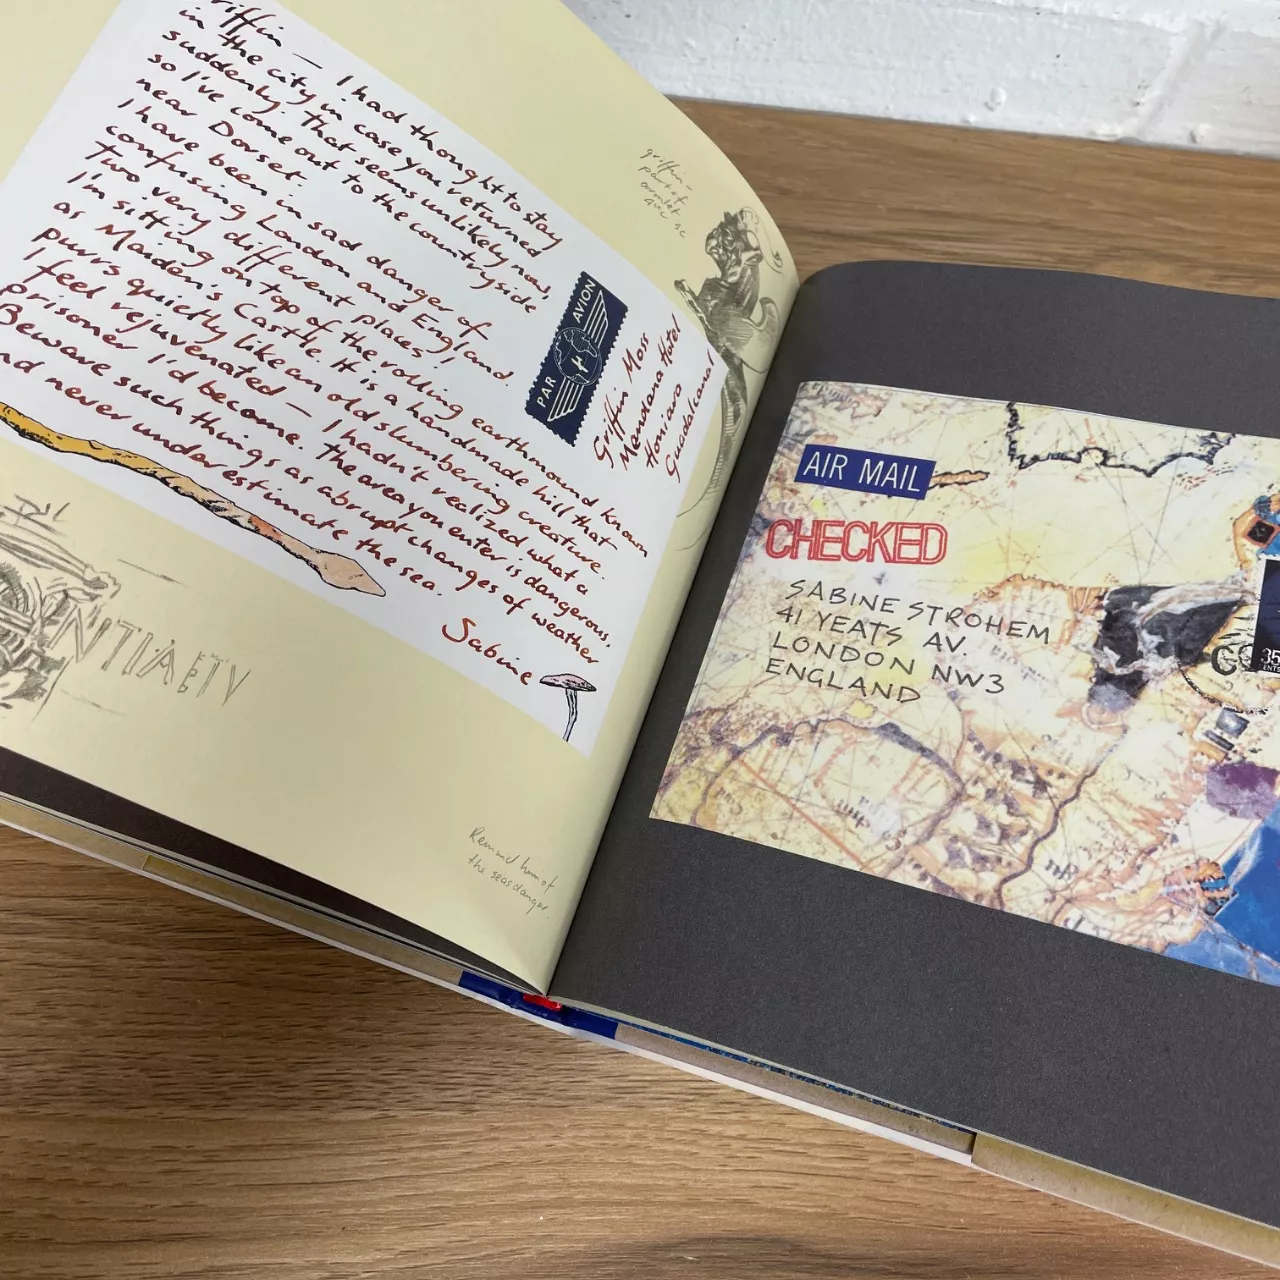 riffin — I had thought to stay
in the city in case you returned
suddenly. That seems unlikely now,
so I've come out to the countryside
near Dorset.
I have been in sad danger of
confusing London and England.
Two very different places!
I'm sitting on top of the rolling earthmound known
as Maiden's Castle. It is a handmade hill that
purrs quietly like an old slumbering creature.
I feel rejuvenated — I hadn't realized what a
prisoner I'd become. The area you enter is dangerous.
Beware such things as abrupt changes of weather
nd never underestimate the sea.
Sabine
PAR AVION
Griffin Moss
Mendana Hotel
Honiara
Guadalcanal
griffin –
part of
Remind him of
the seas danger.
AIR MAIL
CHECKED
SABINE STROHEM
41 YEATS AV.
LONDON NW3
ENGLAND
35
ENTS